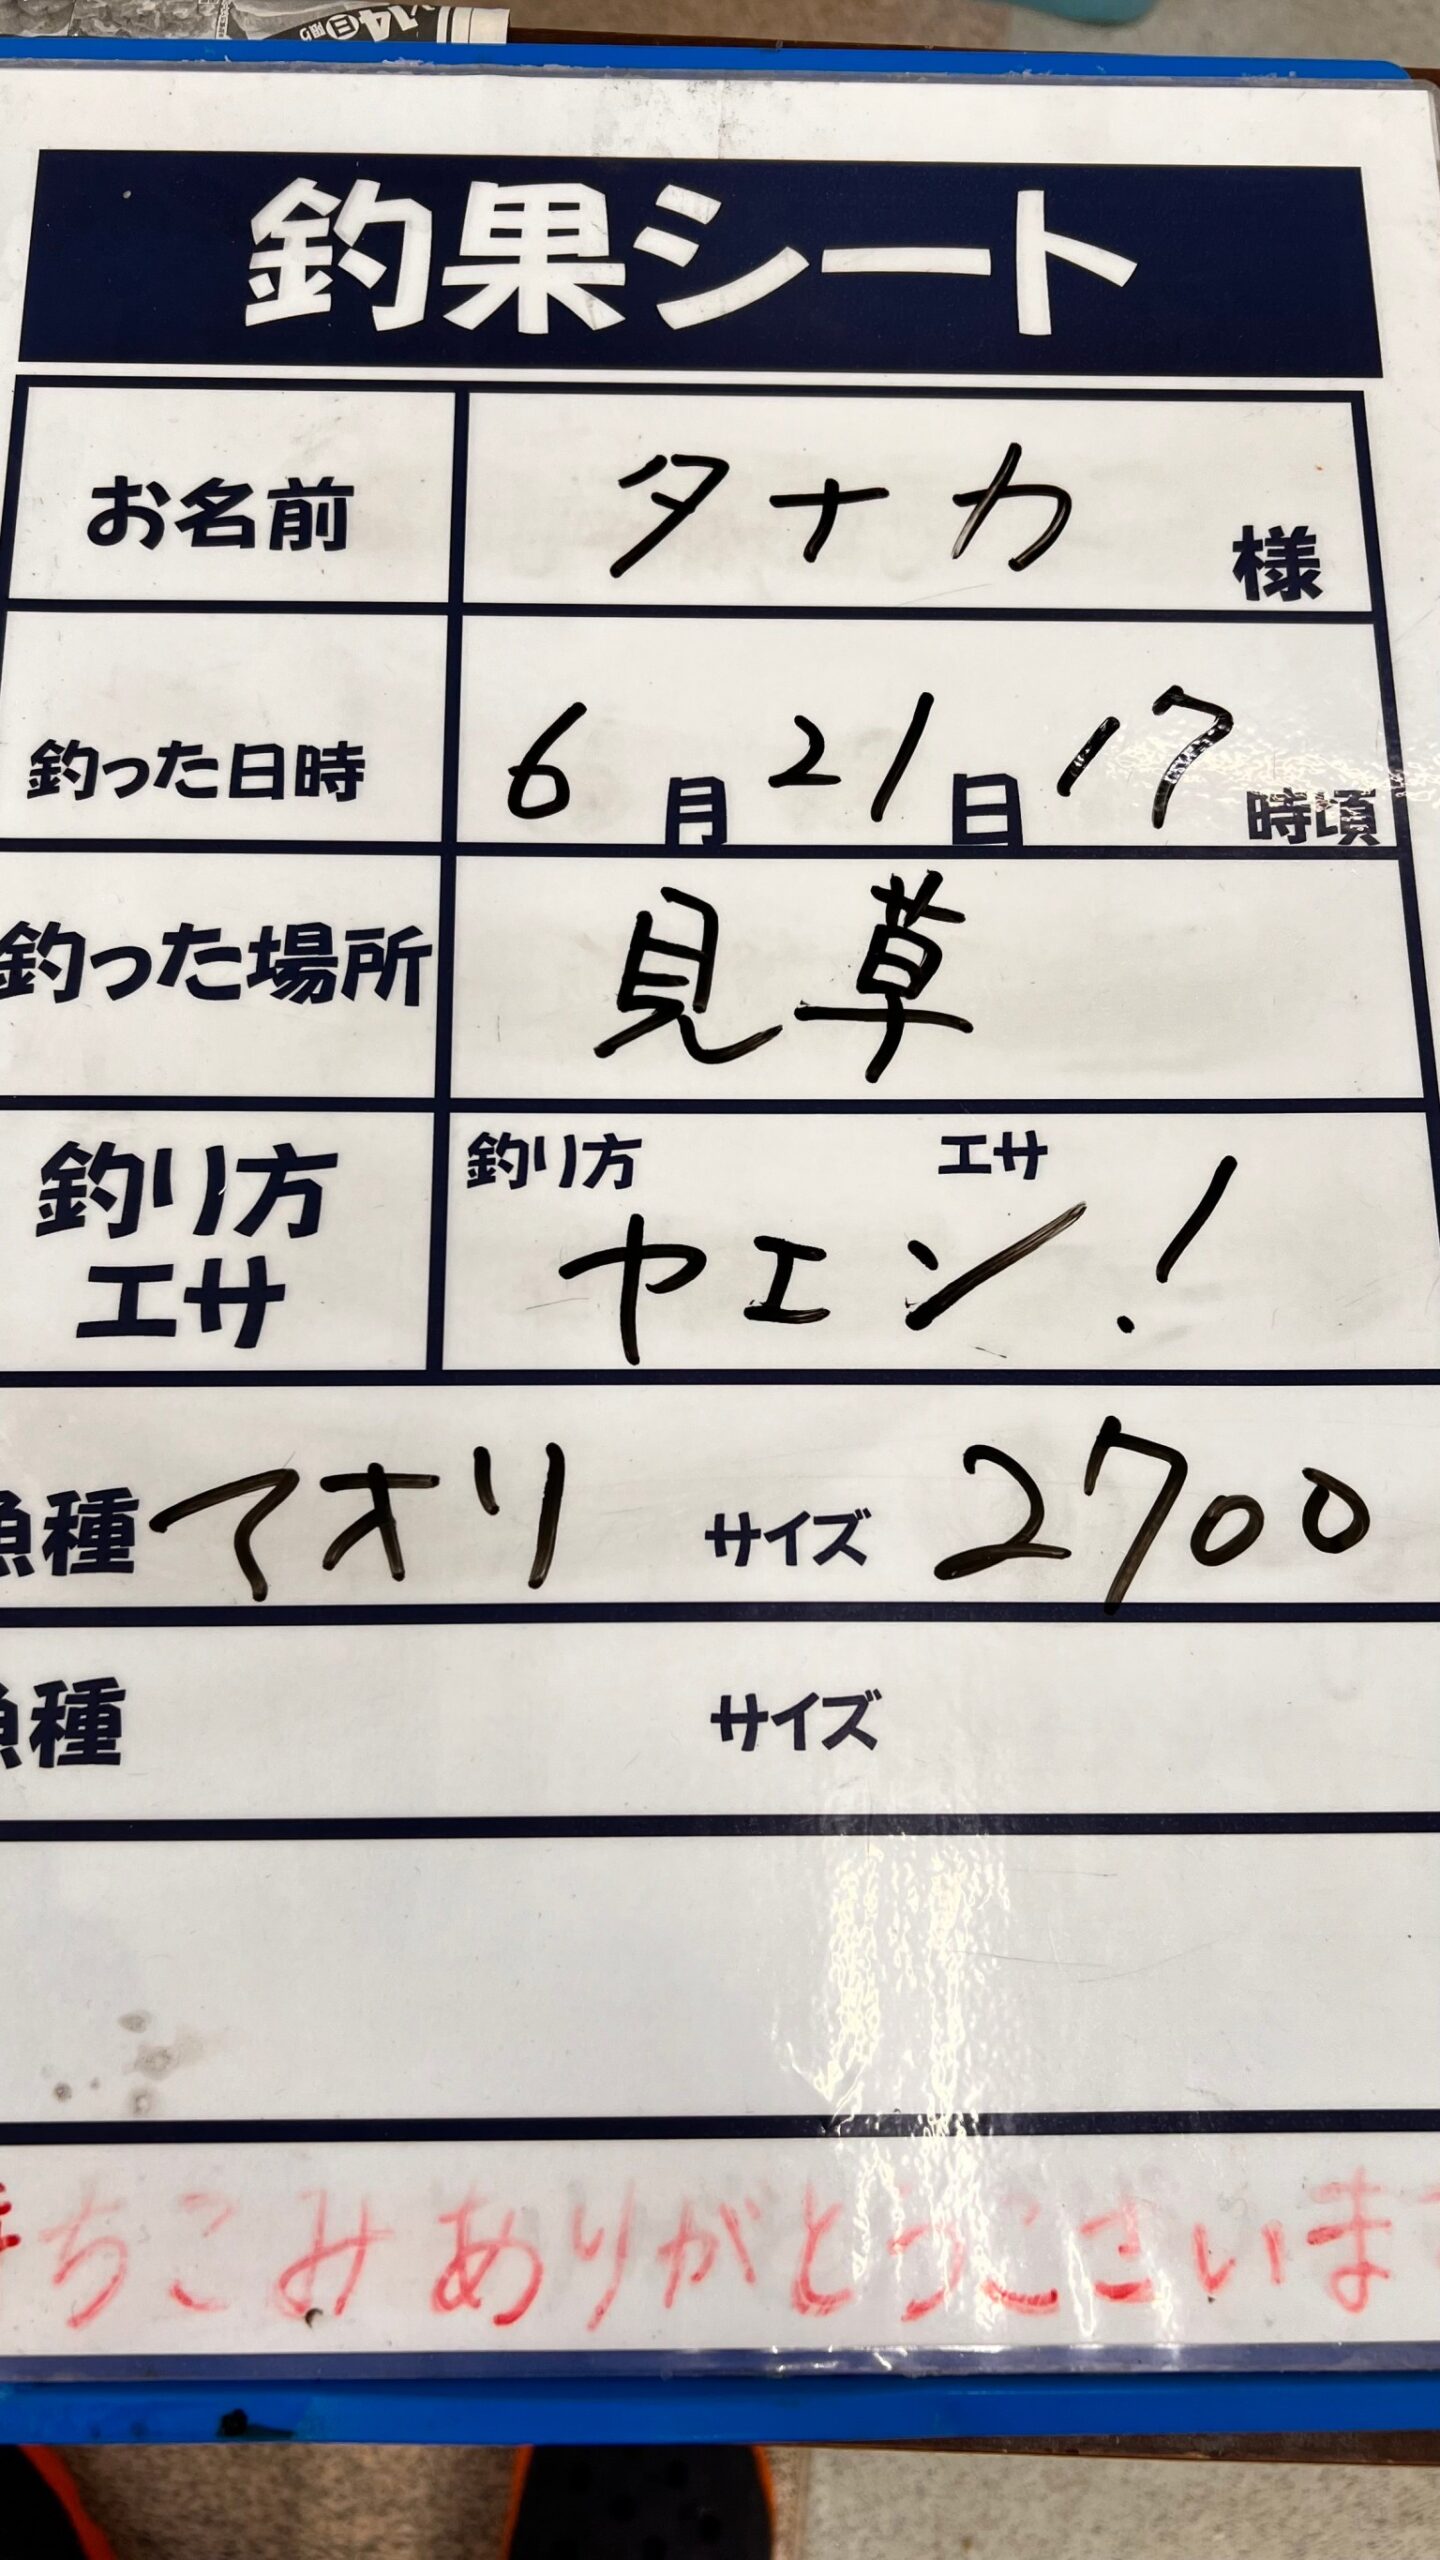 釣果シート
お名前 タナカ 様
釣った日時 6月21日17時頃
釣った場所 見草
釣り方 エサ
釣り方
エサ
ヤエン!
魚種 アオリ サイズ 2700
魚種 サイズ
持ちこみありがとうございます